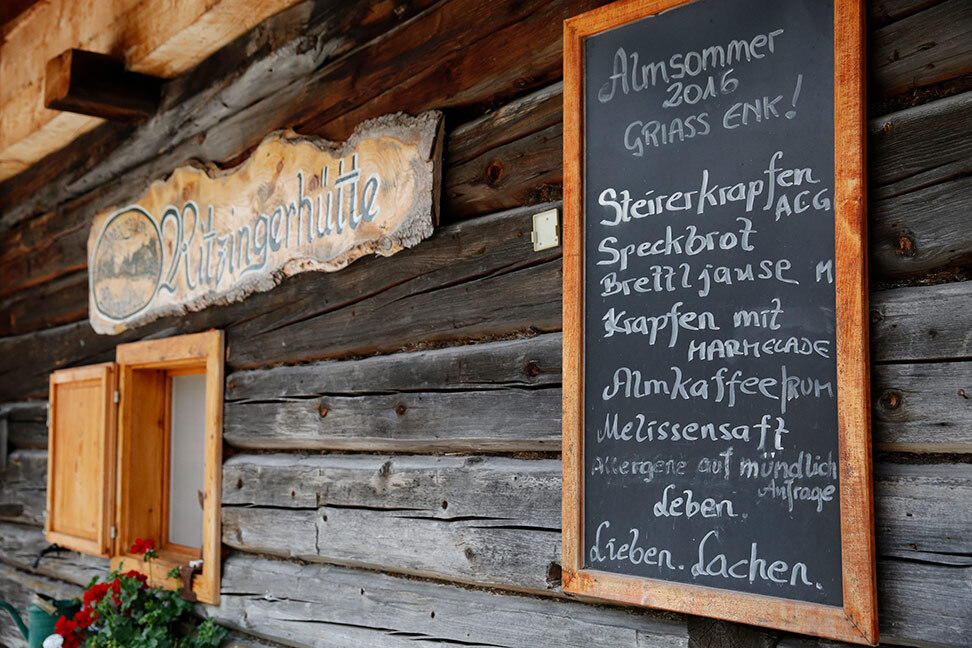 Ritzingerhütte
Almsommer
2016
GRIASS ENK!
Steirerkrapfen
ACG
Speckbrot
Brettljause M
Krapfen mit
MARMELADE
Almkaffee/RUM
Melissensaft
Allergene auf mündlich
Anfrage
Leben.
Lieben. Lachen.